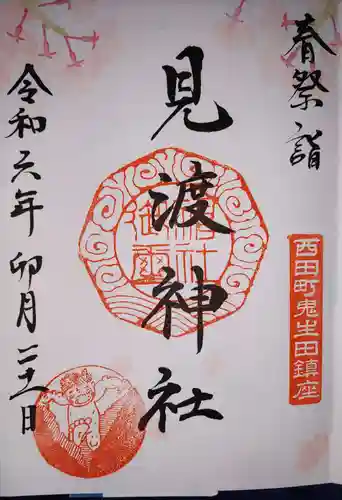 春祭詣
見渡神社
西田町鬼生田鎮座
令和六年卯月二十一日